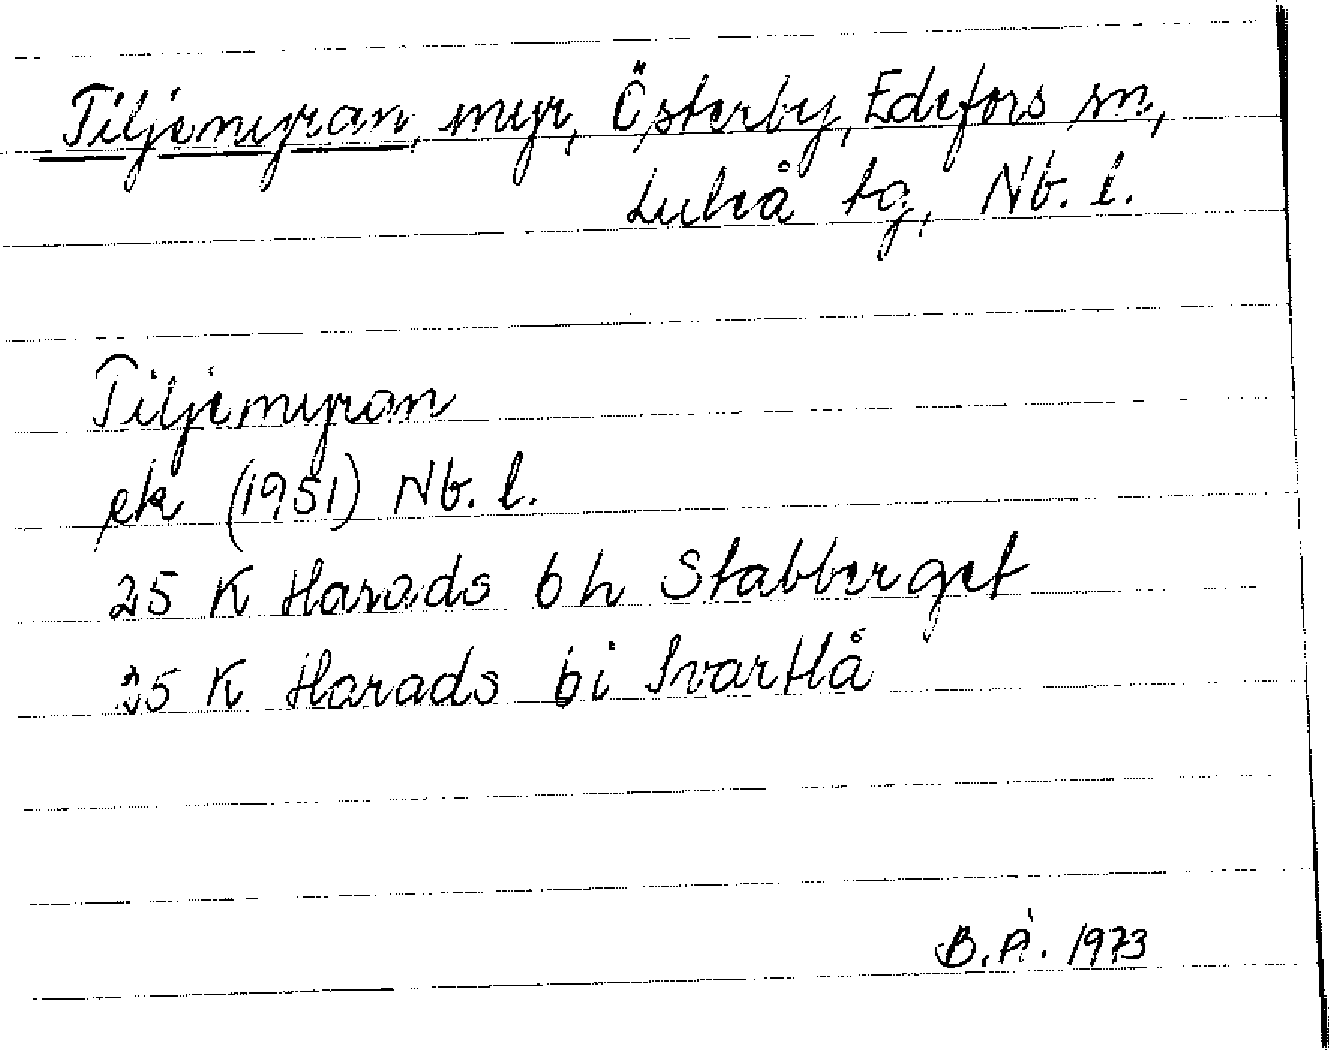 Tiljemyran, myr, Österby, Edefors sn,
Luleå tg, Nb. l.
Tiljemyran
ek (1951) Nb. l.
25 K Harads 6 h Stabberget
25 K Harads 6i Svartlå
B.Å. 1973